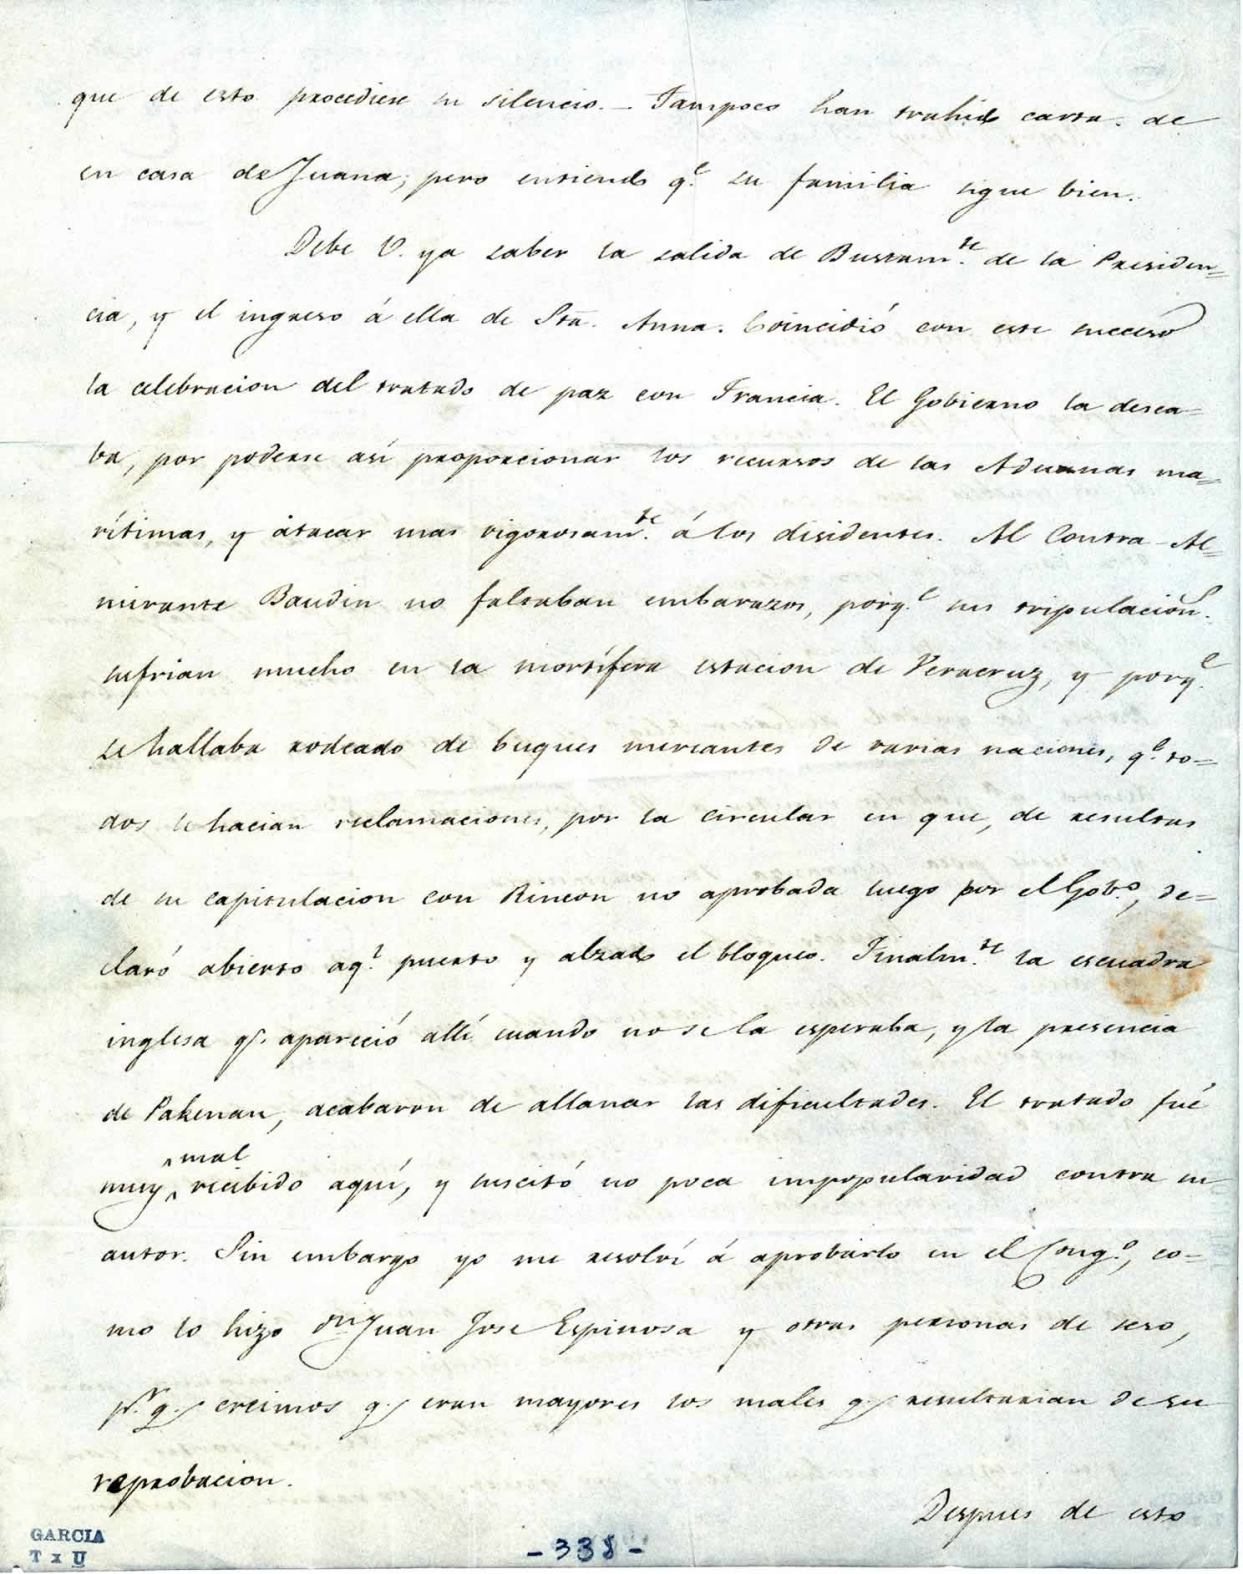 que de esto procediese su silencio. – Tampoco han trahido carta de
en casa de Juana; pero entiendo q.e su familia sigue bien.
Debe V. ya saber la salida de Bustam.te de la Presiden=
cia, y el ingreso á ella de Sta. Anna. Coincidió con este suceso
la celebracion del tratado de paz con Francia. El Gobierno la desea-
ba, por poderse así proporcionar los recursos de las Aduanas ma=
rítimas, y atacar mas vigorosam.te á los disidentes. Al Contra-Al=
mirante Baudin no faltaban embarazos, porq.e sus tripulacion.s
sufrian mucho en la mortífera estacion de Veracruz, y porq.e
se hallaba rodeado de buques mercantes de varias naciones, q.e to=
dos le hacian reclamaciones, por la circular en que, de resultas
de su capitulacion con Rincon no aprobada luego por el Gob.o, de=
claró abierto aq.l puerto y alzado el bloqueo. Finalm.te la escuadra
inglesa q.e apareció allí cuando no se la esperaba, y la presencia
de Pakenan, acabaron de allanar las dificultades. El tratado fué
mal
muy recibido aquí, y suscitó no poca impopularidad contra su
autor. Sin embargo yo me resolví á aprobarlo en el Cong.o, co=
mo lo hizo dn Juan José Espinosa y otras personas de seso,
p.r q.e creimos q.e eran mayores los males q.e resultarian de su
reprobacion.
Despues de esto
GARCIA
T x U
- 338 -